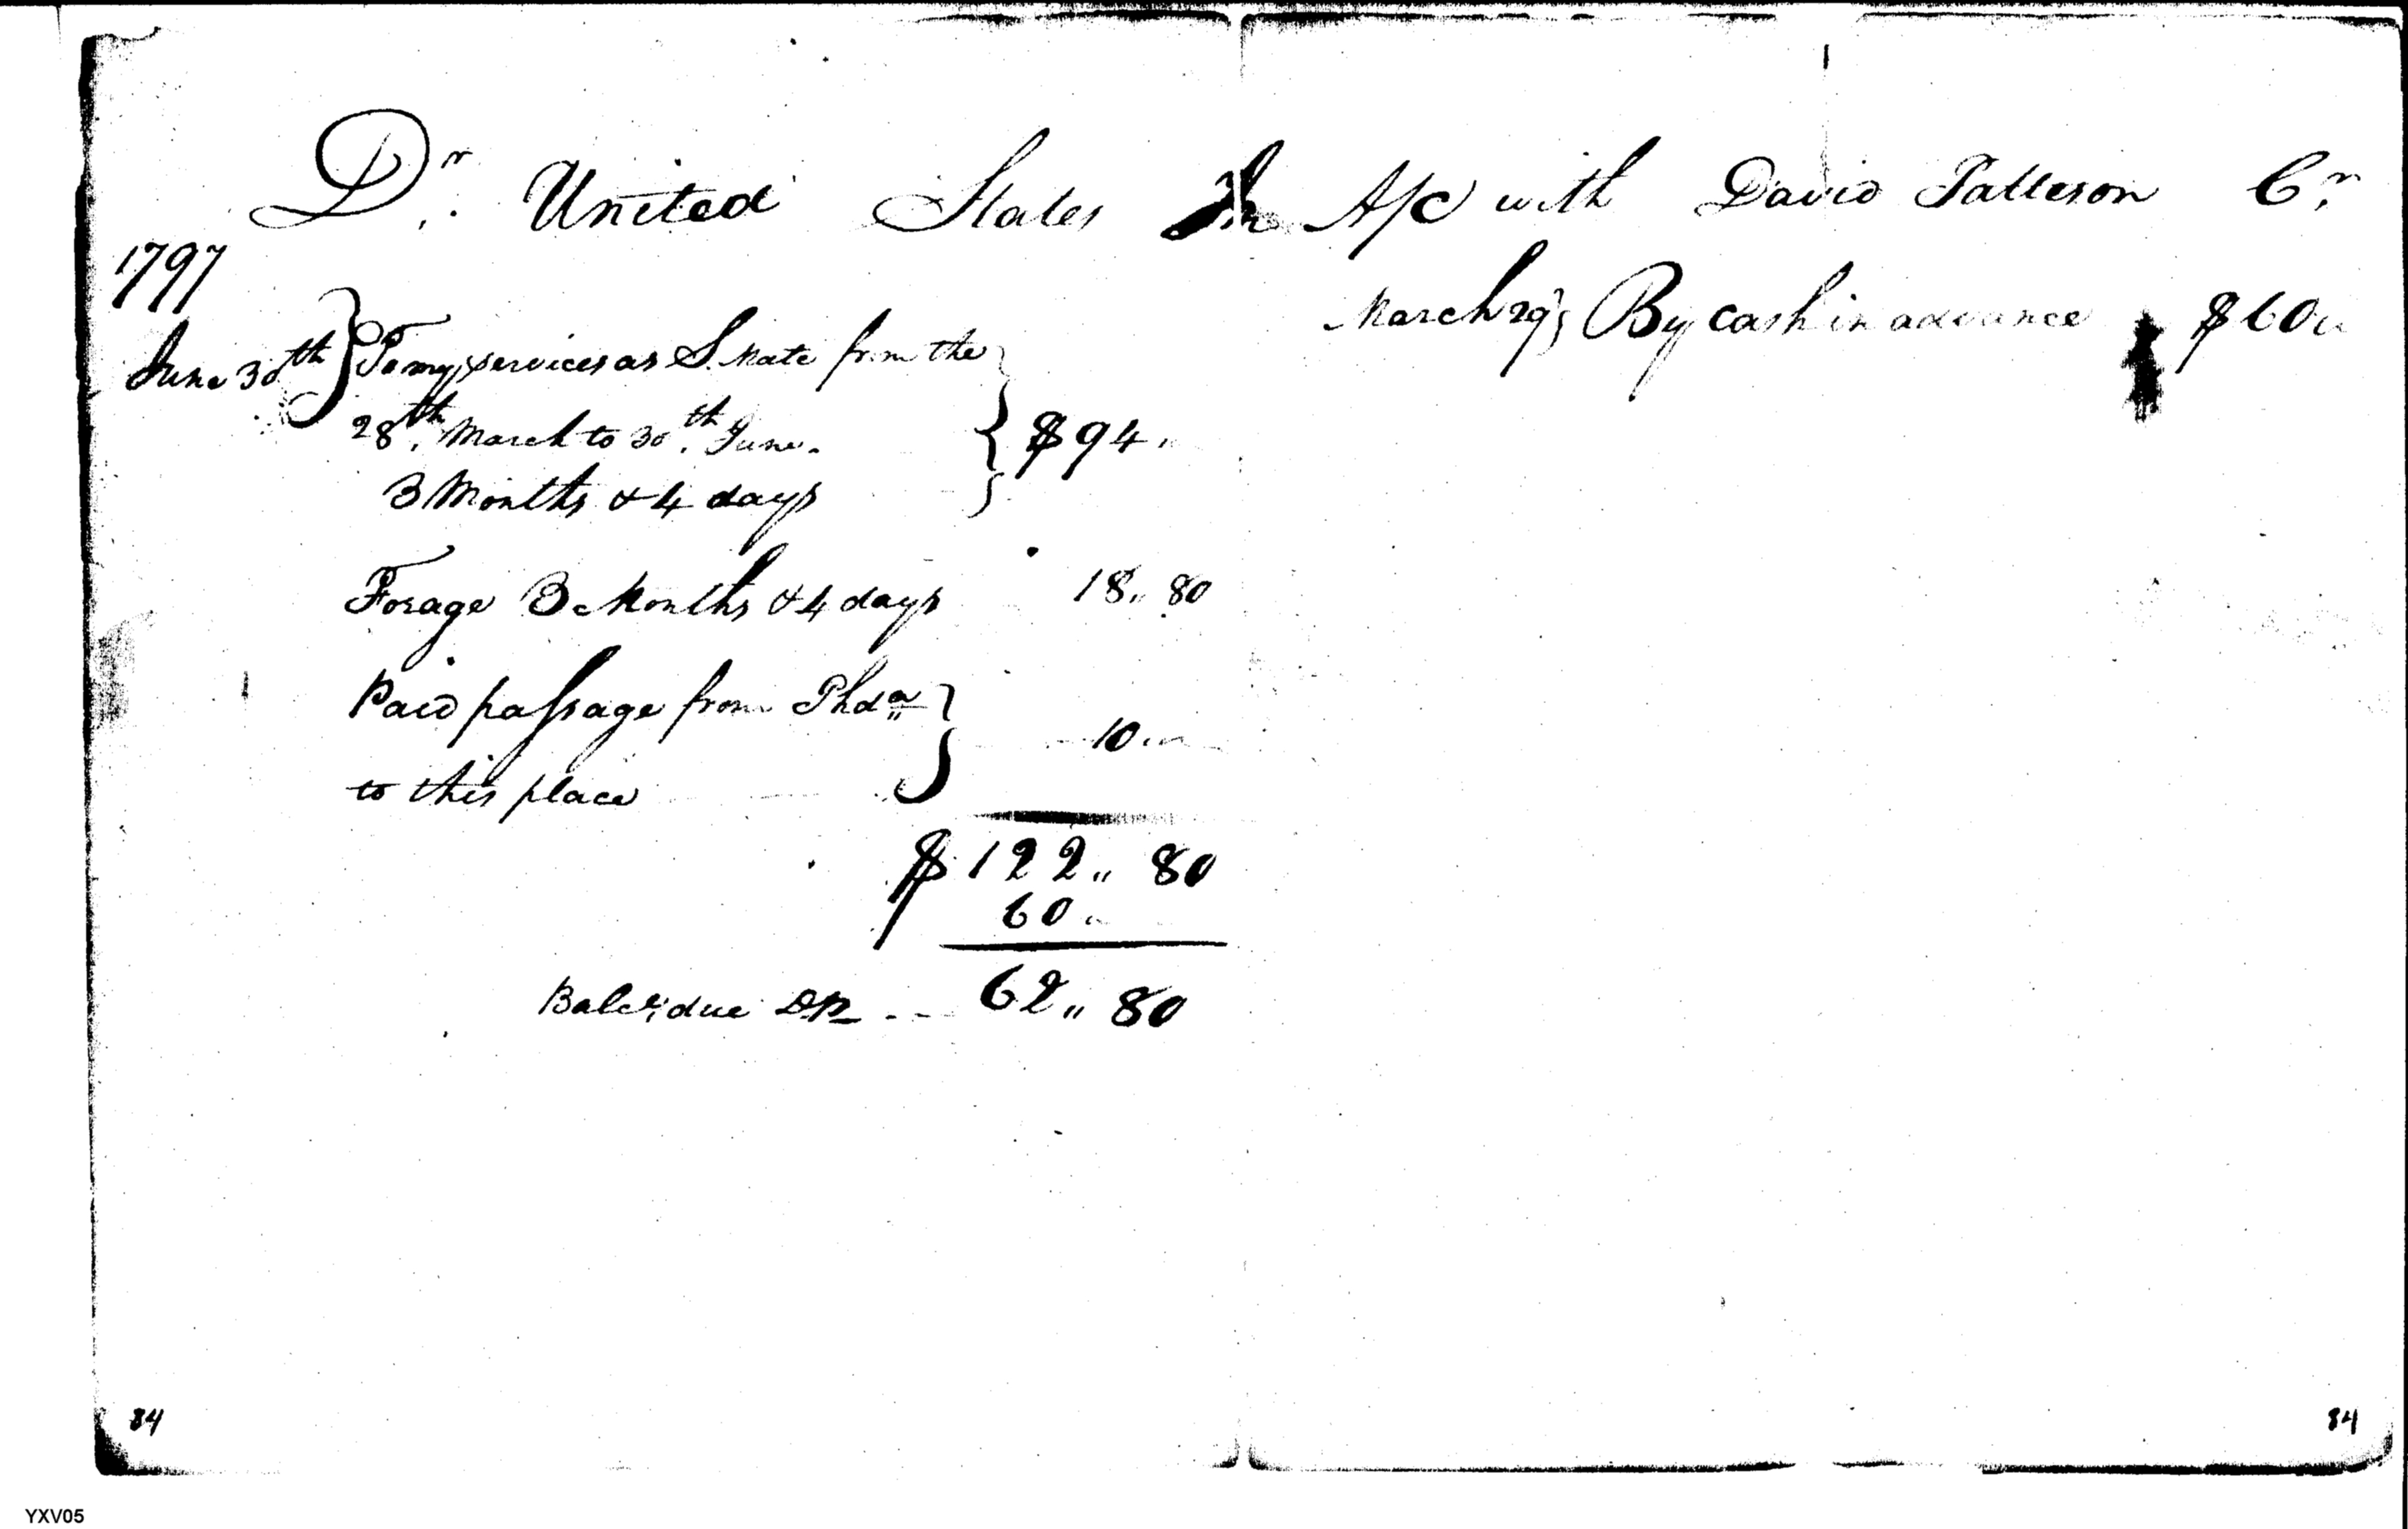 Dr. United States In A/C with David Patteson Cr.
1797
June 30th } To my services as S. Mate from the
28th. March to 30.th June.
3 Months & 4 days } $ 94 "
Forage 3 Months & 4 days 18 " 80
Paid passage from Phda
to this place } 10 "
$ 122 " 80
60 "
Balce. due DP -- 62 " 80
March 29 } By cash in advance $ 60 "
84
84
YXV05